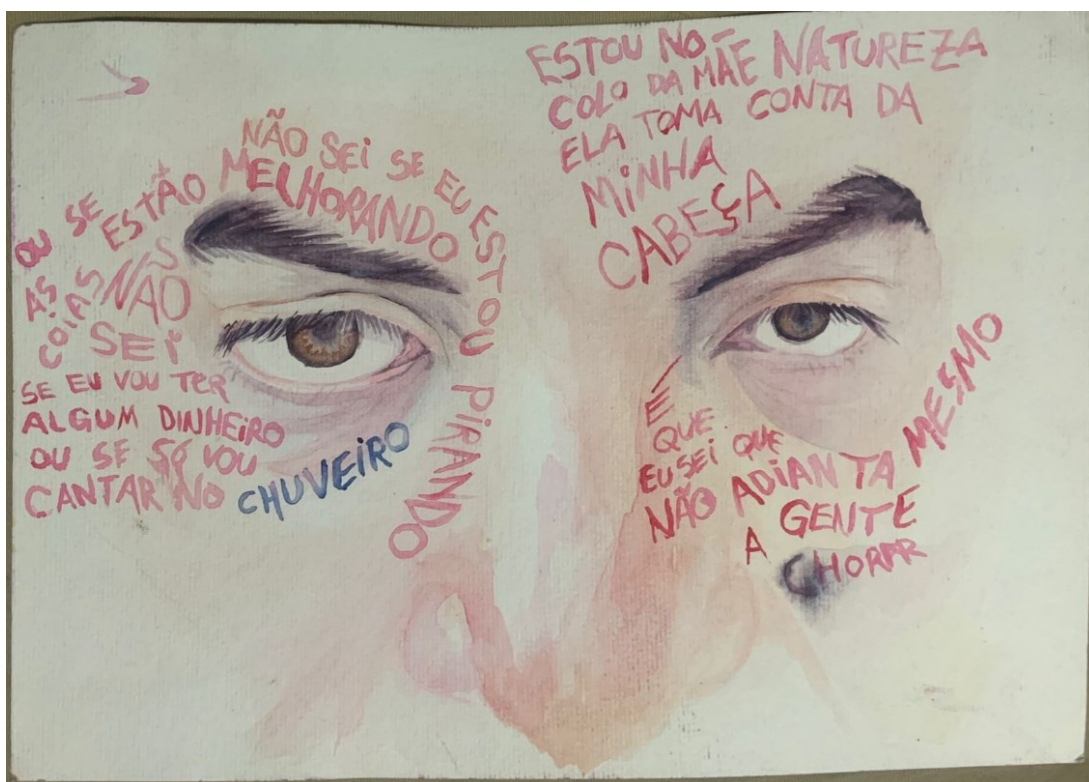 NÃO SEI SE EU ESTOU PIRANDO
OU SE AS COISAS ESTÃO MELHORANDO
NÃO SEI
SE EU VOU TER
ALGUM DINHEIRO
OU SE SÓ VOU
CANTAR NO CHUVEIRO
ESTOU NO
COLO DA MÃE NATUREZA
ELA TOMA CONTA DA
MINHA
CABEÇA
É
QUE
EU SEI QUE
NÃO ADIANTA MESMO
A GENTE
CHORAR